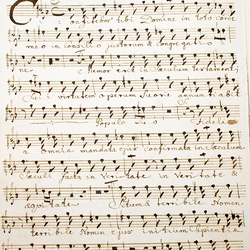 Confitebor tibi Domine in toto corde
meo in consilio justorum & congregatio
ne Memor erit in saeculum testamenti
Sui virtutem operum suorum annuntiabit
Populo suo Fidelia
omnia mandata ejus confirmata in saeculum
Saeculi facta in veritate in veritate &
aequitate Sanctum & terribile Nomen
terribile Nomen ejus initium Sapientiae